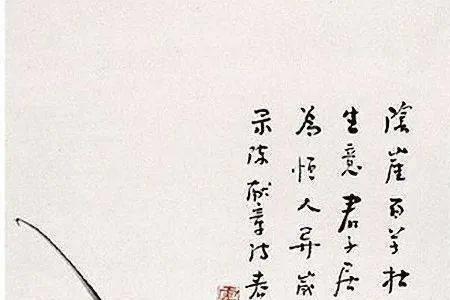 陰崖百草枯
生意君子居
為恒人异歲
录陳献章诗